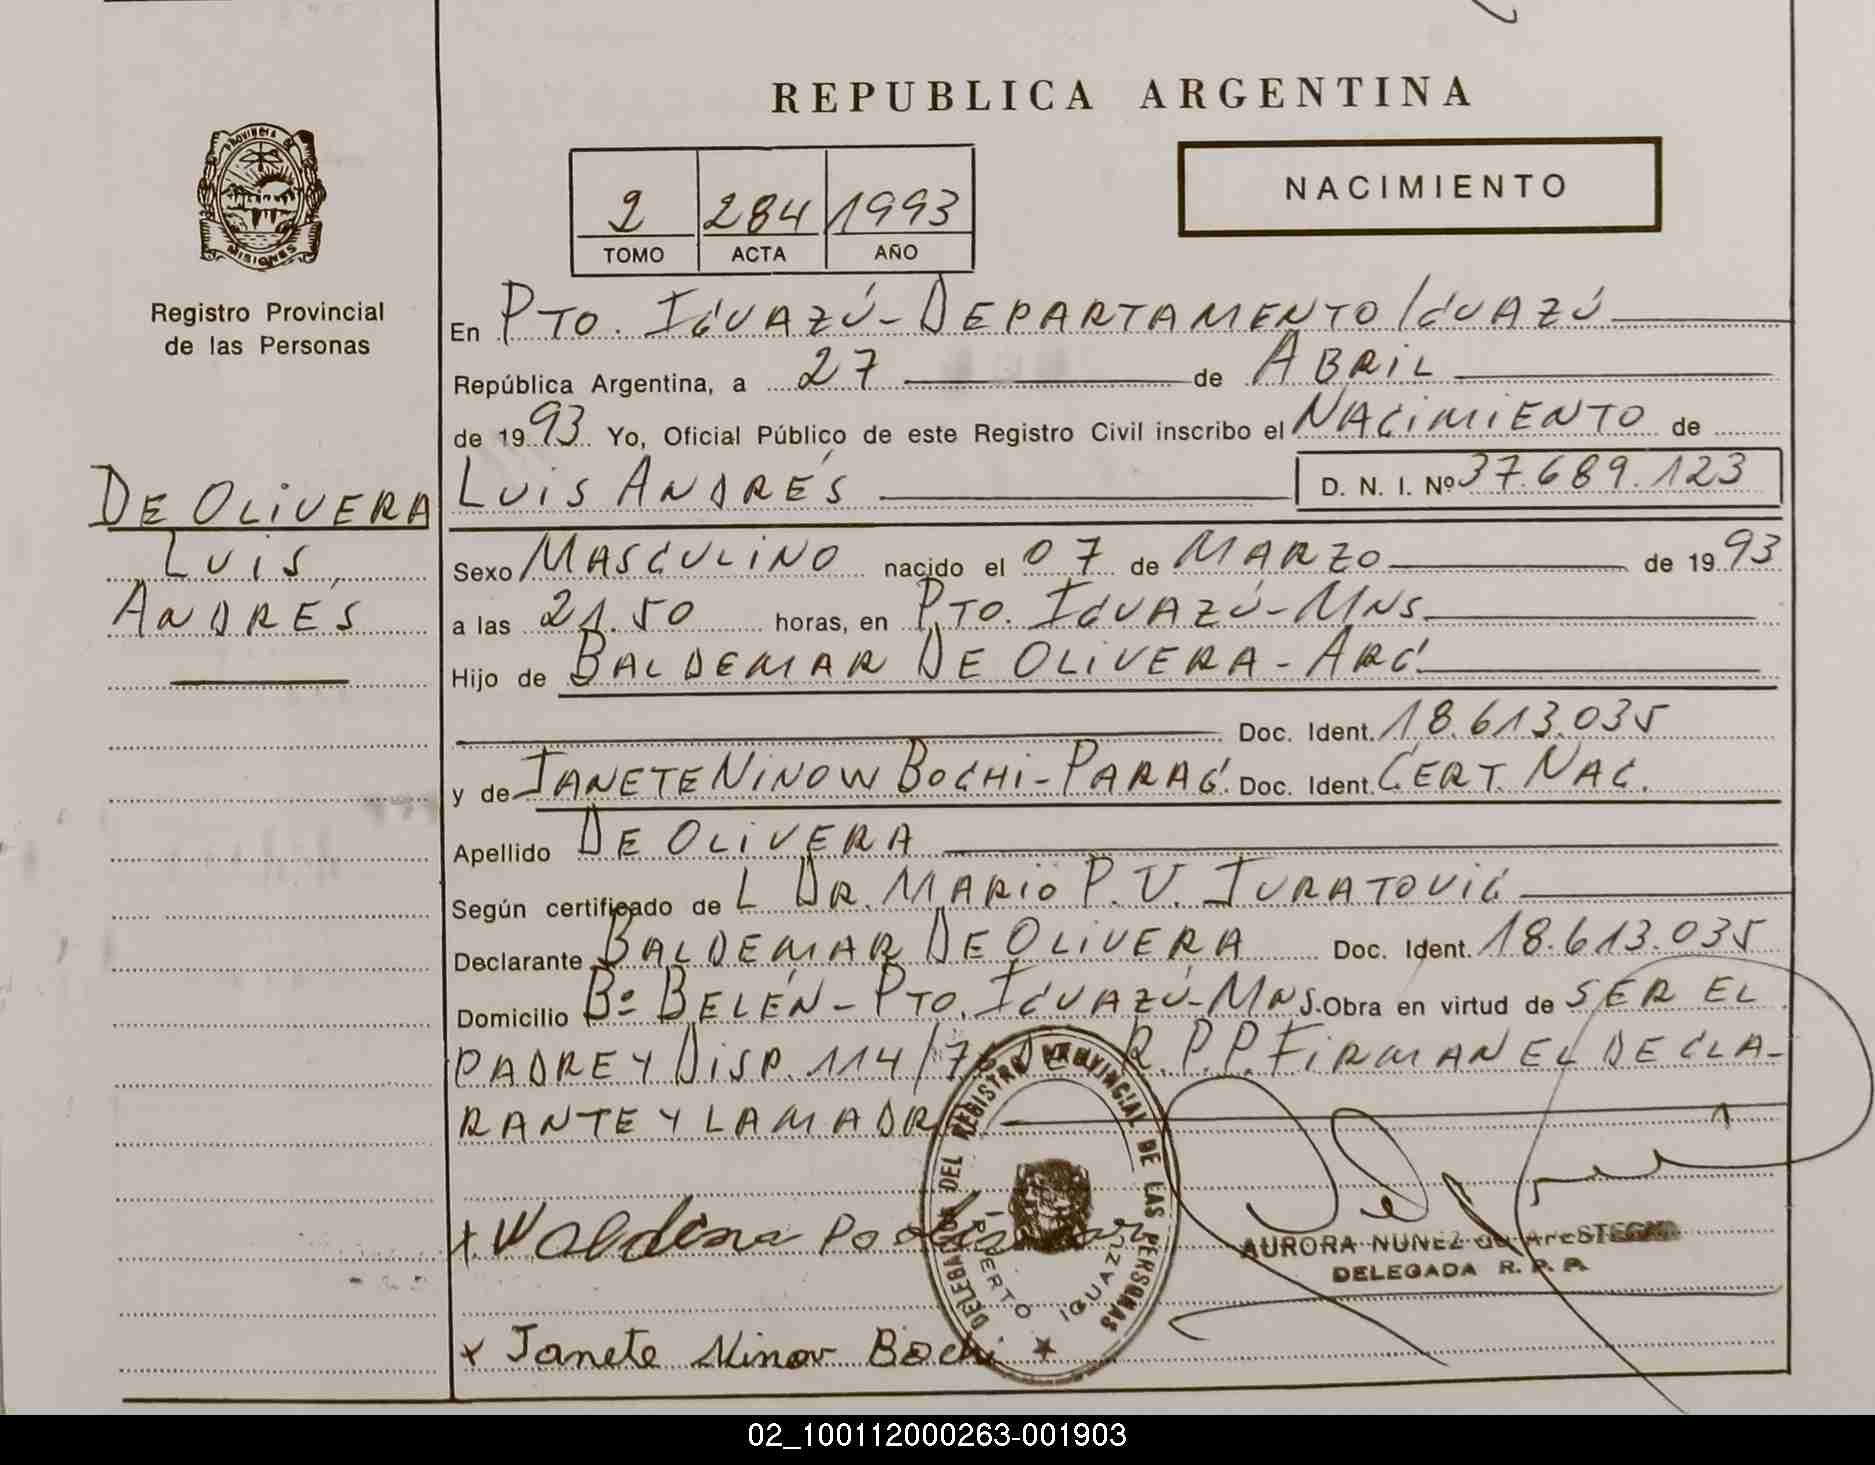 REPUBLICA ARGENTINA
PROVINCIA DE
MISIONES
Registro Provincial
de las Personas
2 284 1993
TOMO ACTA AÑO
NACIMIENTO
En PTO. IGUAZÚ - DEPARTAMENTO IGUAZÚ
República Argentina, a 27 de ABRIL
de 1993 Yo, Oficial Público de este Registro Civil inscribo el NACIMIENTO de
DE OLIVERA
LUIS
ANDRÉS
LUIS ANDRÉS D. N. I. Nº 37.689.123
Sexo MASCULINO nacido el 07 de MARZO de 1993
a las 21.50 horas, en PTO. IGUAZÚ - MNS
Hijo de BALDEMAR DE OLIVERA - ARG.
Doc. Ident. 18.613.035
y de JANETE NINOW BOCHI - PARAG. Doc. Ident. CERT. NAC.
Apellido DE OLIVERA
Según certificado de L DR. MARIO P. V. JURATOVIC
Declarante BALDEMAR DE OLIVERA Doc. Ident. 18.613.035
Domicilio Bº BELÉN - PTO. IGUAZÚ - MNS. Obra en virtud de SER EL
PADRE Y DISP. 114/76 R.P.P. FIRMAN EL DECLA-
RANTE Y LA MADRE
DELEGACION DEL REGISTRO PROVINCIAL DE LAS PERSONAS
PUERTO IGUAZU
AURORA NUÑEZ de AreSTEGUI
DELEGADA R. P. P.
x Janete Ninov Bochi
02_100112000263-001903